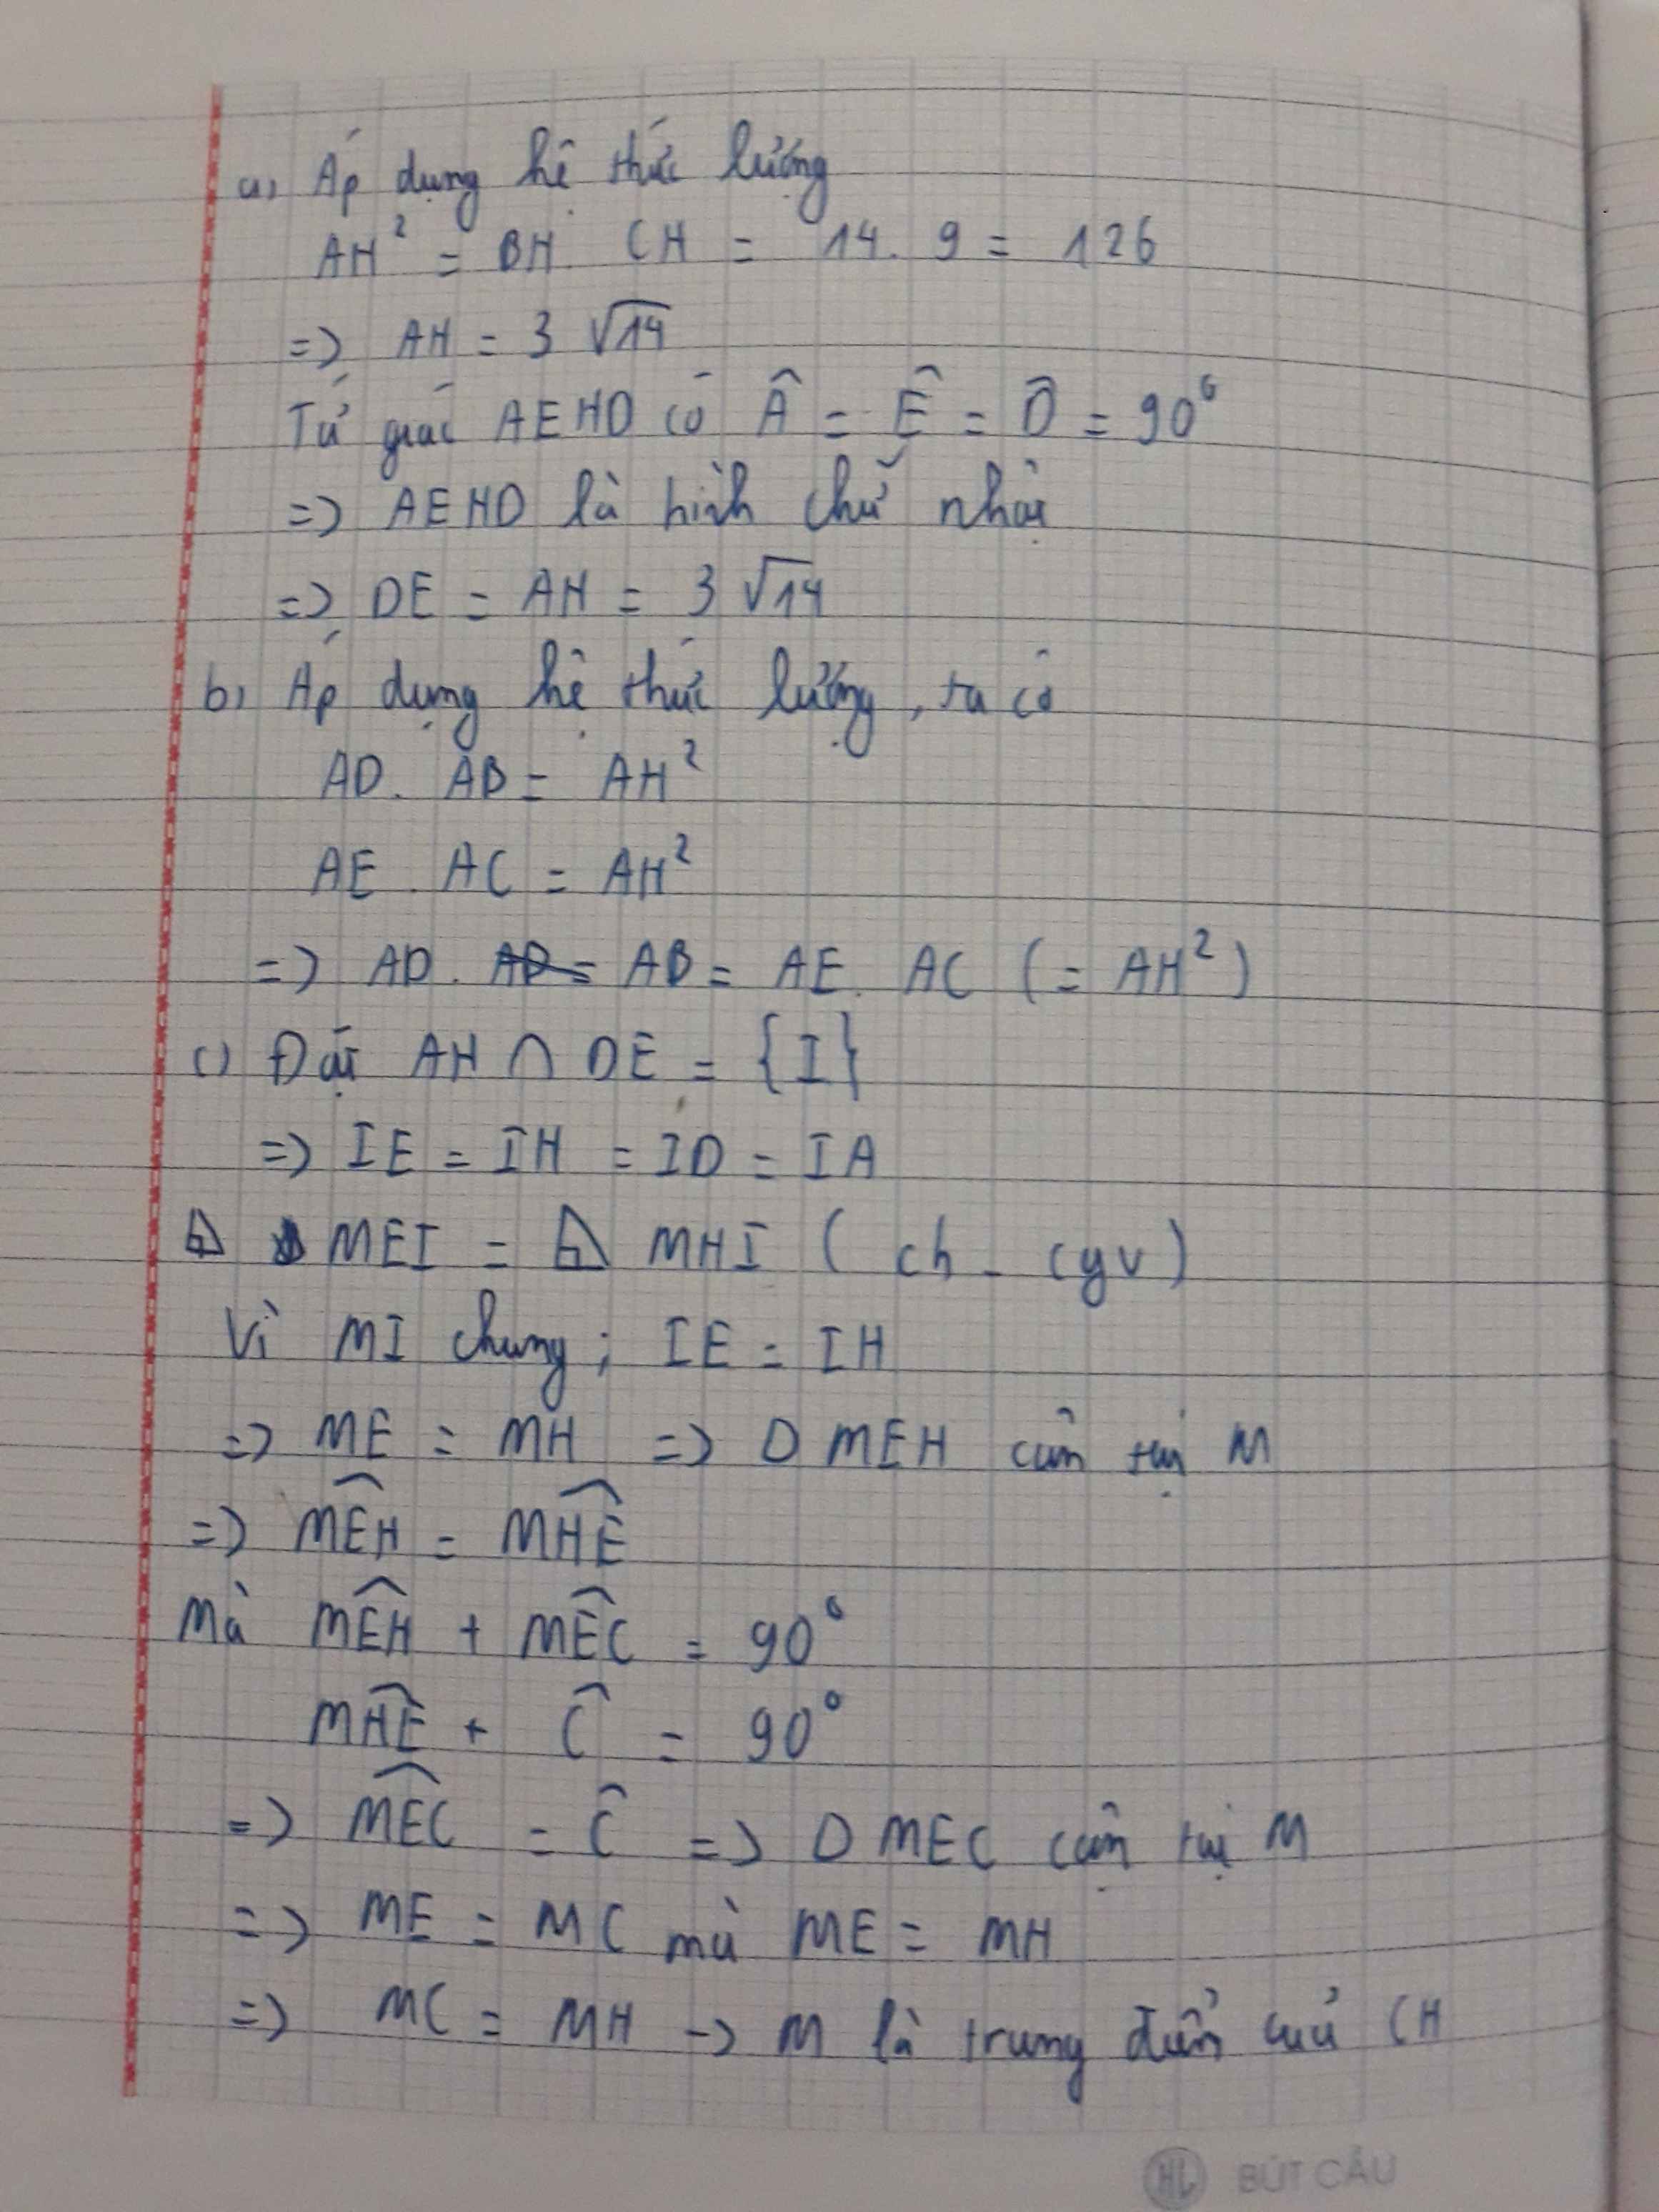 a, Áp dụng hệ thức lượng
AH² = BH. CH = 14. 9 = 126
=> AH = 3√14
Tứ giác AEHD có Â = Ê = D̂ = 90°
=> AEHD là hình chữ nhật
=> DE = AH = 3√14
b, Áp dụng hệ thức lượng, ta có
AD. AB = AH²
AE. AC = AH²
=> AD. AB = AE. AC (= AH²)
c) Đặt AH ∩ DE = {I}
=> IE = IH = ID = IA
⊿ MEI = ⊿ MHI (ch - cgv)
Vì MI chung; IE = IH
=> ME = MH => Δ MEH cân tại M
=> M̂EH = M̂HE
Mà M̂EH + M̂EC = 90°
M̂HE + Ĉ = 90°
=> M̂EC = Ĉ => Δ MEC cân tại M
=> ME = MC mà ME = MH
=> MC = MH -> M là trung điểm của CH
HL BÚT CÂU